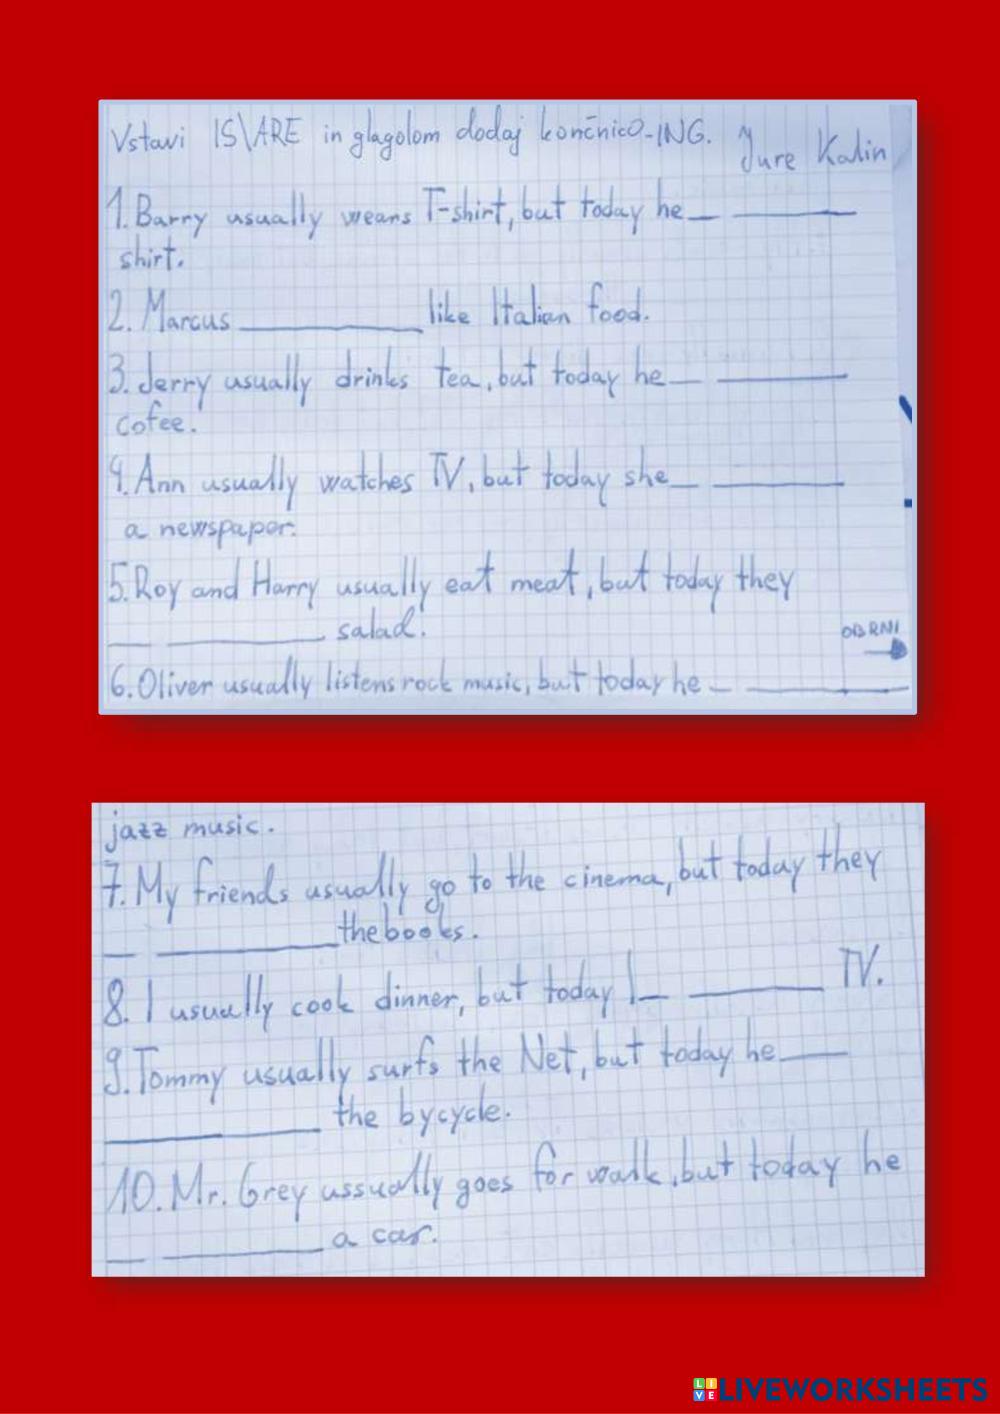 Vstavi IS\ARE in glagolom dodaj končnico -ING. Jure Kalin
1. Barry usually wears T-shirt, but today he_ ______
shirt.
2. Marcus ________ like Italian food.
3. Jerry usually drinks tea, but today he_ ______
cofee.
4. Ann usually watches TV, but today she_ ______
a newspaper.
5. Roy and Harry usually eat meat, but today they
__ ________ salad.
OBRNI
6. Oliver usually listens rock music, but today he_ ______
jazz music.
7. My friends usually go to the cinema, but today they
__ ________ the books.
8. I usually cook dinner, but today I_ ______ TV.
9. Tommy usually surfs the Net, but today he___
________ the bycycle.
10. Mr. Grey ussually goes for walk, but today he
__ ________ a car.
LIVE LIVEWORKSHEETS